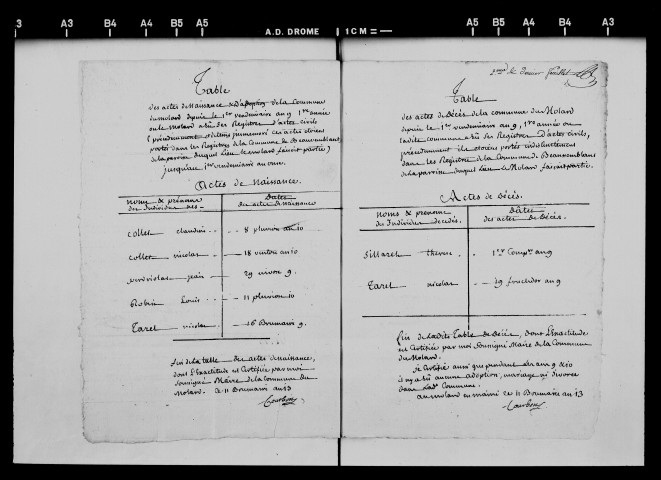 3 A3 B4 A4 B5 A5 A.D. DROME 1 CM = A5 B5 A4 B4 A3
Table
des actes de Naissance & d'adoption de la Commune
du Molard depuis le 1er vendemiaire an 9 1re année
ou le Molard a eu ses Registres d'actes civils
(précédemment et
portés dans les Registres de la Commune de Beausemblant
de la parroisse duquel lieu le Molard faisoit partie)
jusqu'au 1er vendemiaire an onze.
Actes de Naissance.
noms & prénoms des Individus nés
Dates des actes de Naissance
Collet claudine 8 pluviose an 10
Collet nicolas 18 ventose an 10
jean 29 nivose 9.
Robin Louis 11 pluviose 10
Taret nicolas 16 Brumaire 9.
fin de la table des actes de naissance,
dont l'exactitude est Certifiée par moi
soussigné Maire de la Commune du
Molard. ce 11 Brumaire an 13
Courbon
Table
des actes de Décès de la commune du Molard
depuis le 1er vendemiaire an 9, 1re année ou
ladite commune a eu ses Registres d'actes civils,
précédemment ils étoient portés
dans les Registres de la Commune de Beausemblant
de la parroisse duquel lieu le Molard faisoit partie.
Actes de Décès.
noms & prénoms des Individus décédés.
Dates des actes de Décès.
Sillaret therese 1er Compre an 9
Taret nicolas 29 fructidor an 9
fin de ladite Table de Décès, dont l'exactitude
est Certifiée par moi soussigné Maire de la Commune
du Molard.
je Certifie aussi que pendant les ans 9 & 10
il n'y a eu aucune adoption, mariage ni divorce
dans lade Commune.
au molard en mairie ce 11 Brumaire an 13
Courbon